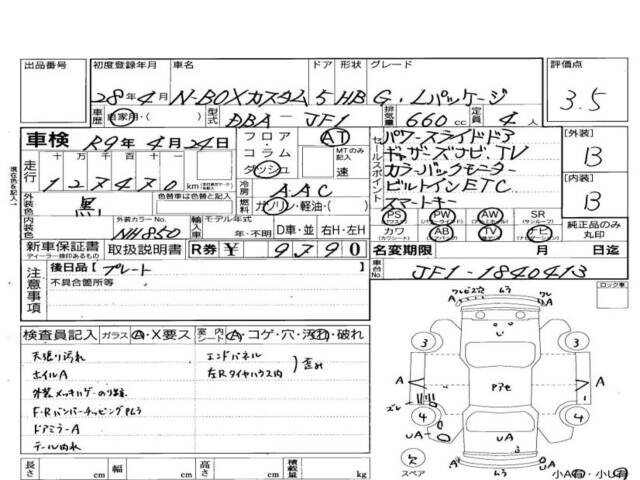 出品番号 初度登録年月 車名 ドア 形状 グレード 評価点
28年4月 N-BOXカスタム 5 HB G, Lパッケージ 3.5
車歴 自家用・( ) 型式 DBA - JF1 排気量 660 cc 定員 4人
車検 R9年4月24日 フロア・コラム・ダッシュ AT MTのみ記入 速
走行 十万 万 千 百 十 127470 km
冷房 AAC
燃料 ガソリン・軽油・( )
外装色 黒 色替車は色替と記入
内装色 外装カラーNo. NH850 輸入車 モデル年式 年・不明 D車・並 右H・左H
セールスポイント
パワースライドドア
ギャザーズナビ, TV
カラーバックモニター
ビルトインETC
スマートキー
[外装] B
[内装] B
PS PW AW SR
カワ AB TV ナビ
純正品のみ丸印
新車保証書 取扱説明書 R券 ¥ 9790
ディーラー捺印あるもの
名変期限 月 日迄
注意事項 後日品 [プレート ]
不具合箇所等
車台No. JF1-1840413
ロック車
検査員記入 ガラス A・X要ス 室内シート A・コゲ・穴・汚れ・破れ
天張り汚れ エンドパネル
ホイルA 左Rタイヤハウス内 歪み
外装メッキハゲ・のり跡
F・RバンパーチッピングPムラ
ドアミラーA
テール内れ
ワレ ムラ ワレ
A A
3 3
A PアセA
ズレ
4 4
UA UA A
欠 スペア
ムラ
小A有・小U有
長さ cm 幅 cm 高さ cm 積載量 kg